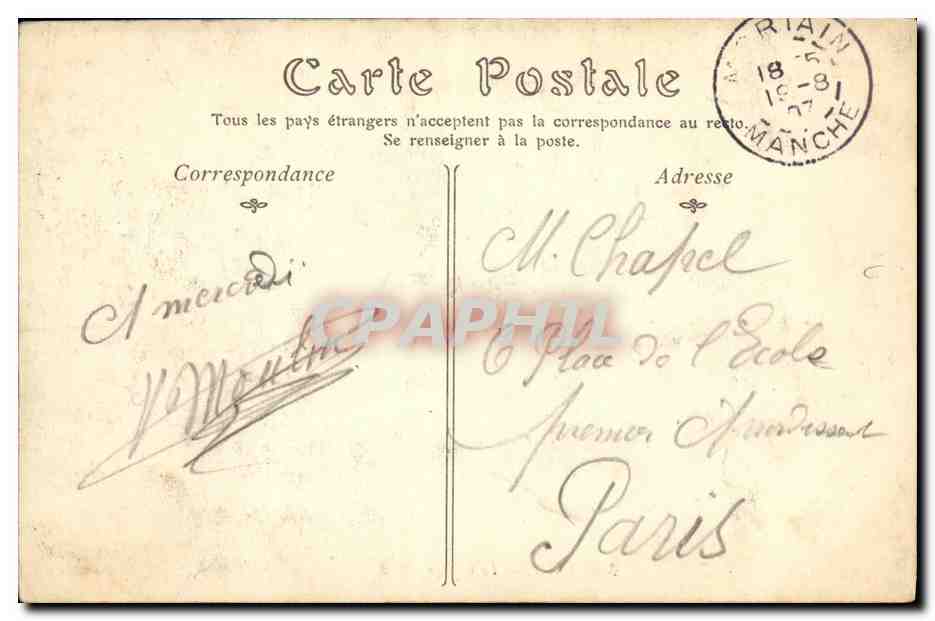 Carte Postale
Tous les pays étrangers n'acceptent pas la correspondance au recto.
Se renseigner à la poste.
MORTAIN
18 5
19-8
07
MANCHE
Correspondance
Adresse
A mercredi
Moulin
M. Chapel
6 Place de l'Ecole
premier Arrondissent
Paris
CPAPHIL